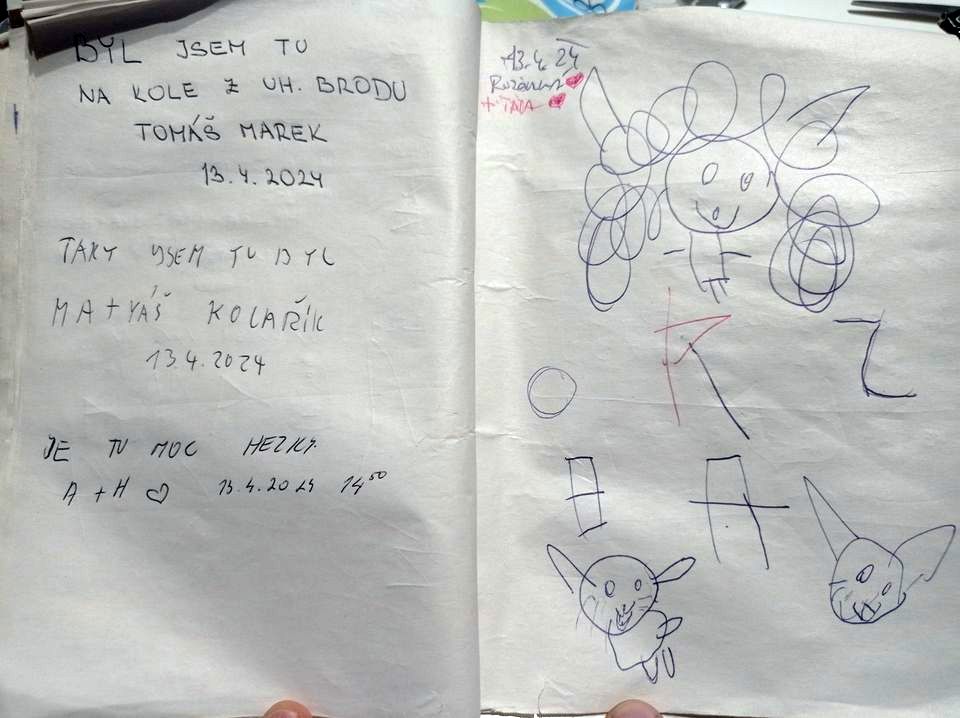 BYL JSEM TU
NA KOLE Z UH. BRODU
TOMÁŠ MAREK
13.4.2024
TAKY JSEM TU BYL
MATYÁŠ KOLAŘÍK
13.4.2024
JE TU MOC HEZKY
A + H ♡ 13.4.2024 14⁵⁰
13.4.24
+ TÁTA ♥